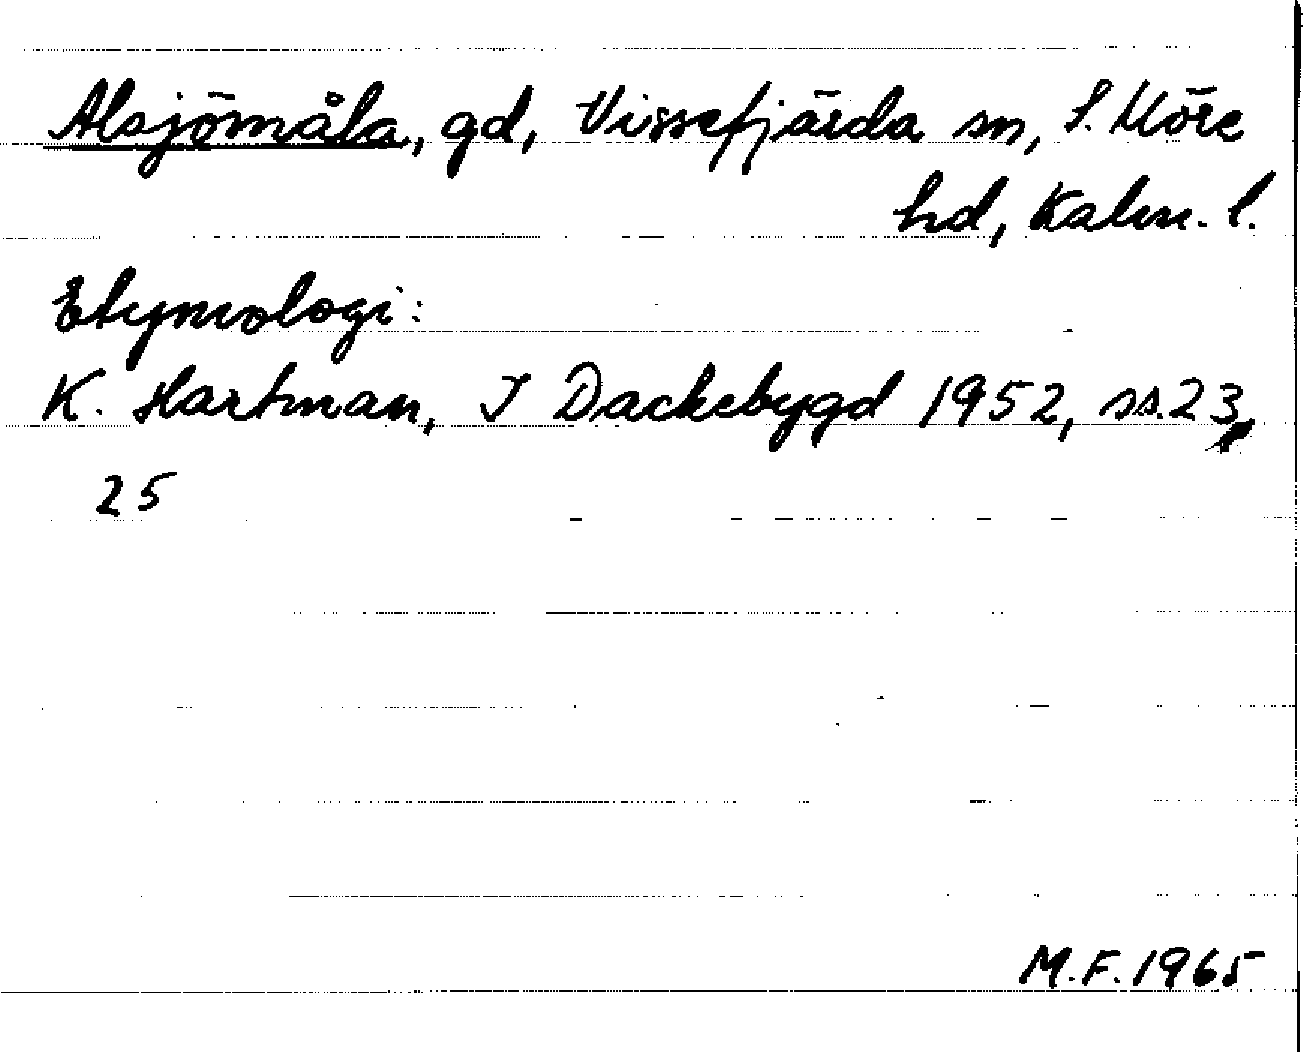 Alsjömåla, gd, Vissefjärda sn, S. Möre
hd, Kalm. l.
Etymologi:
K. Hartman, I Dackebygd 1952, ss. 23,
25
M.F. 1965